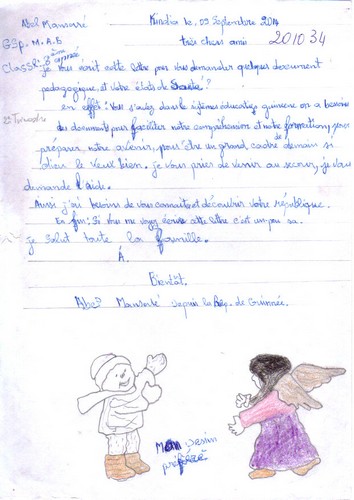 Abel Mansaré
Kindia le, 09 Septembre 2014
Gsp. M.A.E
très chers ami
201034
Classe: 8ème année
je vous écrit cette lettre pour vous demander quelques document
pedagogique et votre états de Sante?
en effet: Vous s'avez dans le système éducatif guinéene on a besoins
des documents pour faciliter notre comprehension et notre formation, pour
préparer notre avenir, pour être un grand cadre de demain si
Dieu le veux bien. je vous prier de venir au secour, je vous
demande l'aide.
Aussi j'ai besoins de vous connaitre et découvrir votre république.
En fin: Si vous me voyez écrire cette lettre c'est un peu sa.
je salut toute la famille.
À.
Bientôt.
Abel Mansaré depuis la Rép. de Guinnée.
Mon dessin
préféré